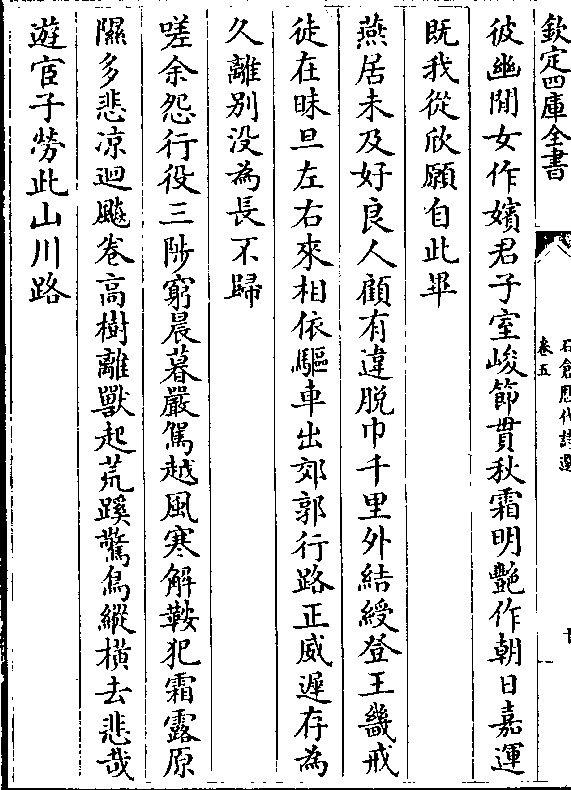 欽定四庫全書
石倉歷代詩選
卷五
彼幽閒女作嬪君子室峻節貫秋霜明艷作朝日嘉運
既我從欣願自此畢
燕居未及好良人顧有違脱巾千里外結綬登王畿戒
徒在昧旦左右來相依驅車出郊郭行路正威遲存為
久離別没為長不歸
嗟余怨行役三陟窮晨暮嚴駕越風寒解鞍犯霜露原
隰多悲凉迴飈卷高樹離獸起荒蹊驚鳥縱橫去悲哉
遊宦子勞此山川路